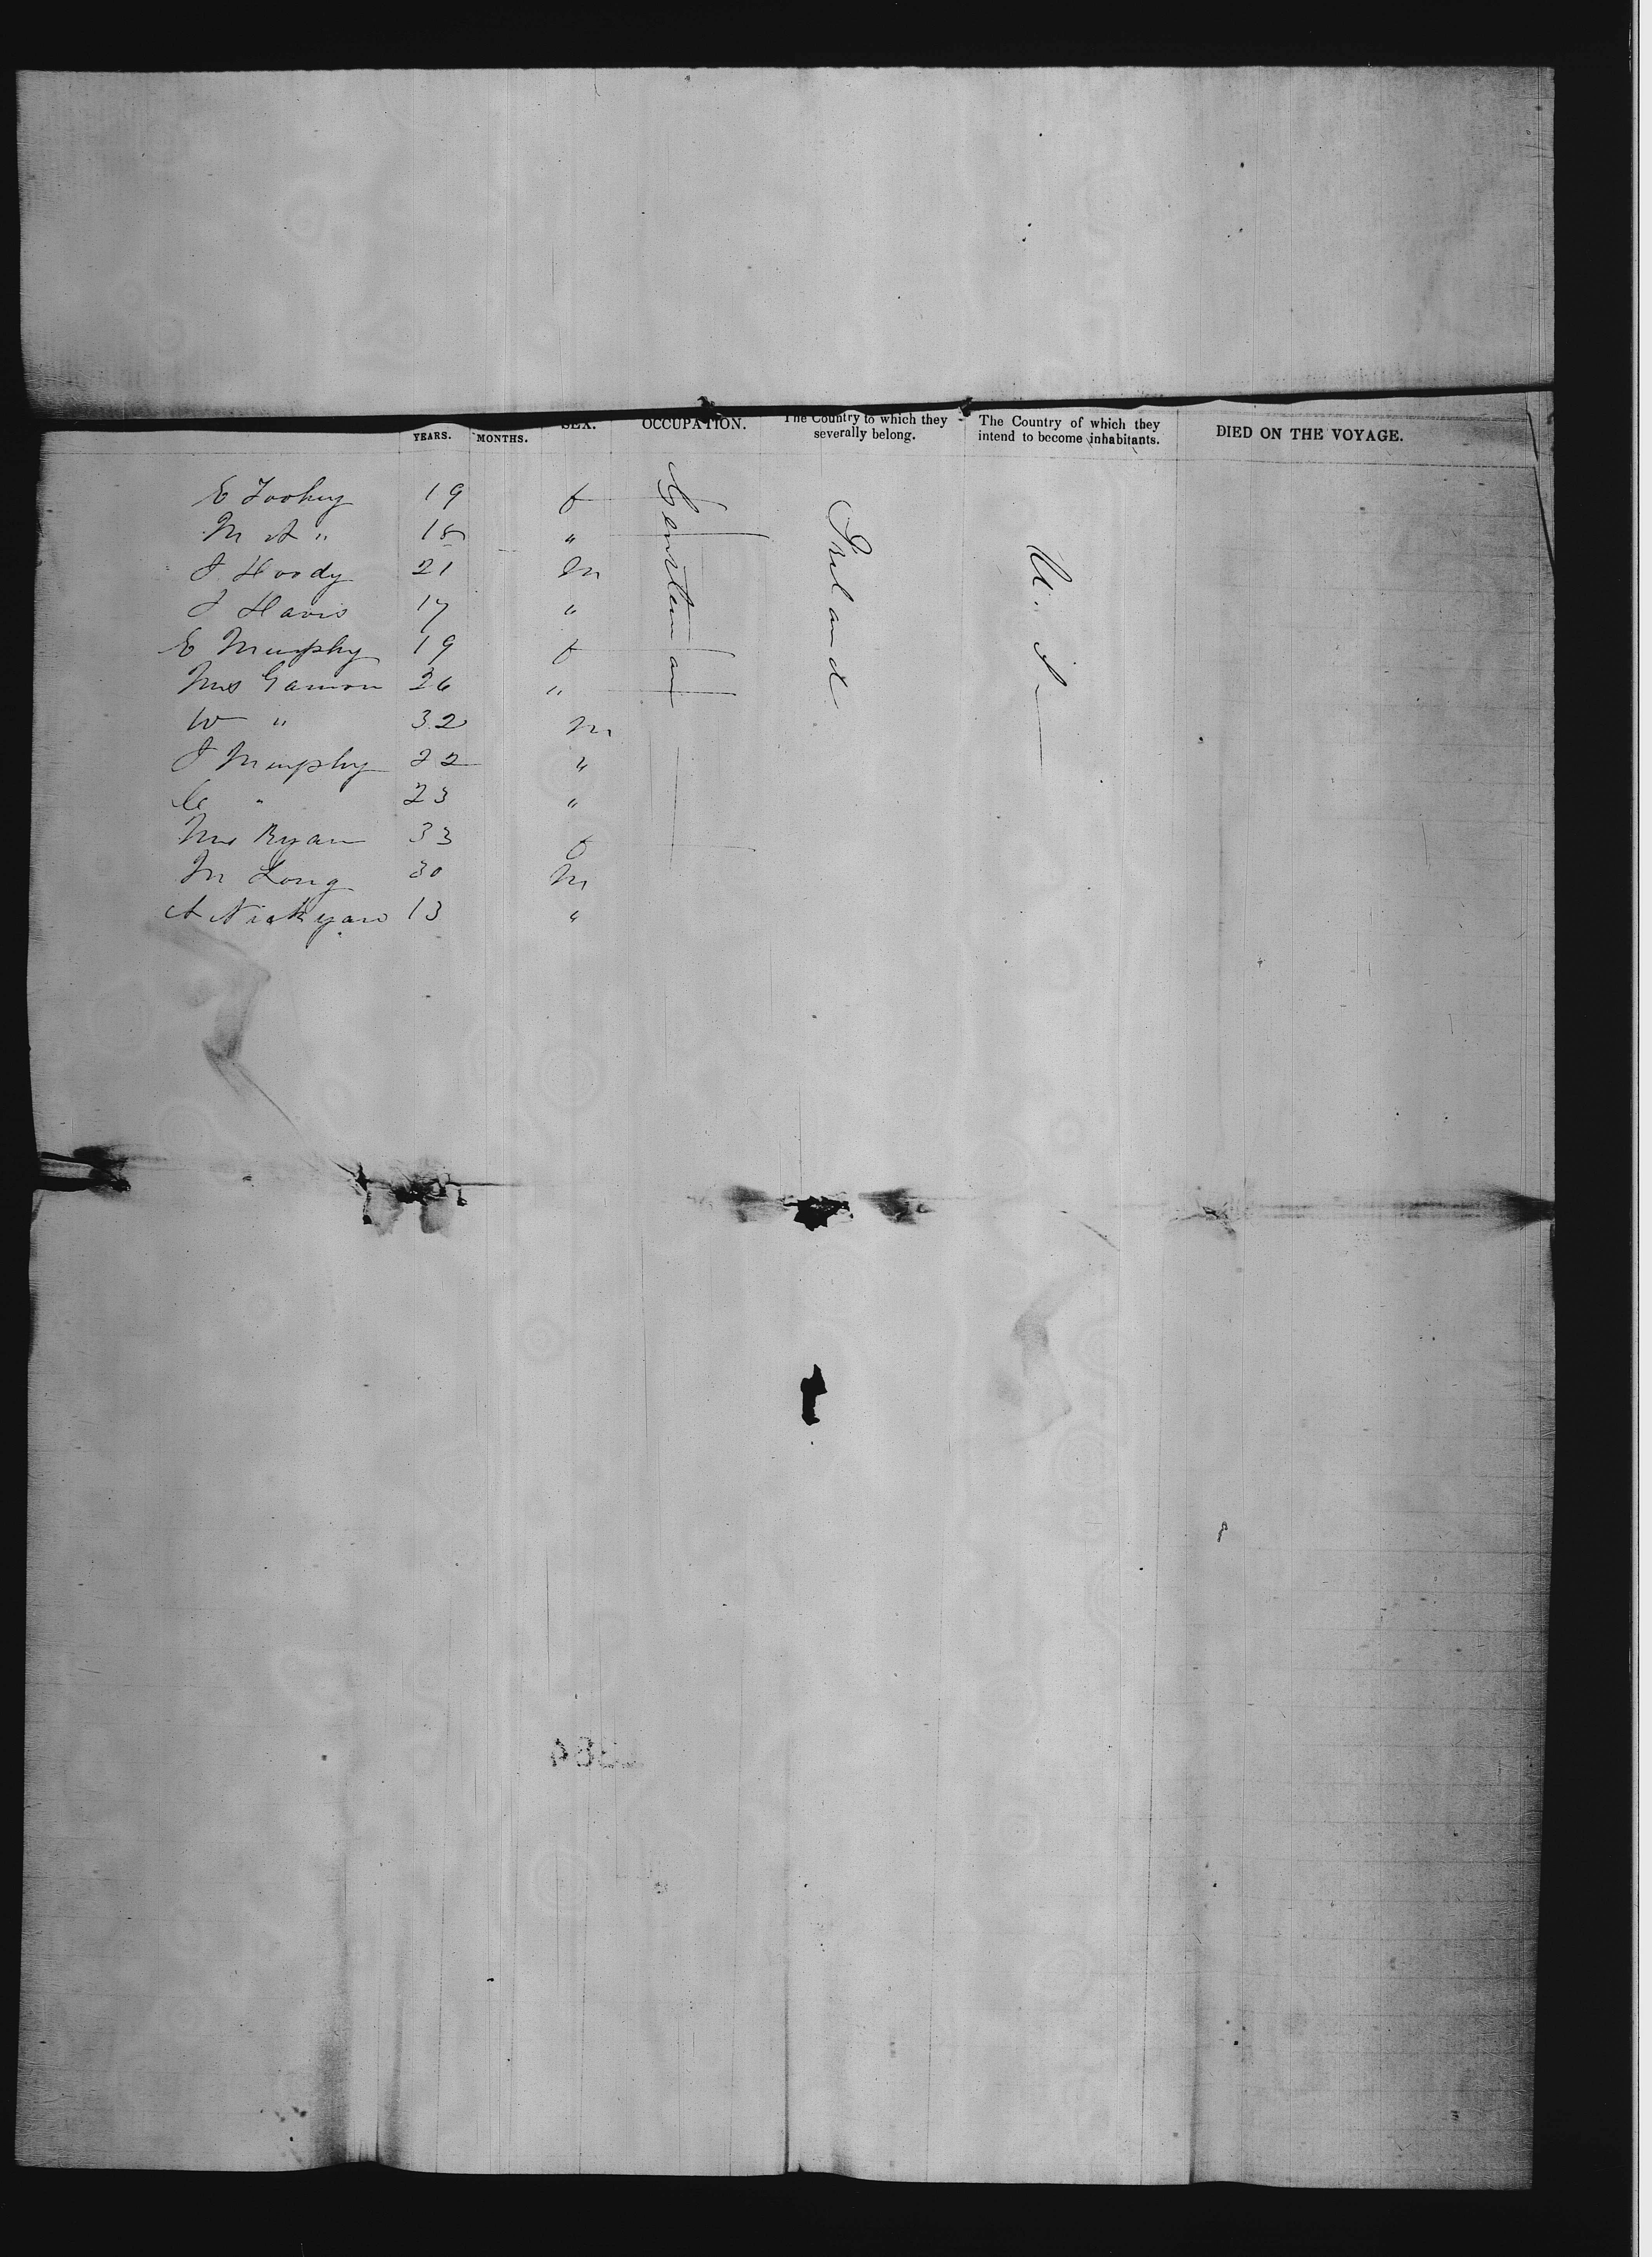 YEARS. MONTHS. SEX. OCCUPATION. The Country to which they severally belong. The Country of which they intend to become inhabitants. DIED ON THE VOYAGE.
E Toohey 19 f Gentleman Ireland U. S
M A " 18 "
J Hoody 21 M
J Havis 17 "
E Murphy 19 f
Mrs Gamon 26 "
W " 32 M
J Murphy 22 "
C " 23 "
Mrs Ryan 33 f
M Long 30 M
A 13 "